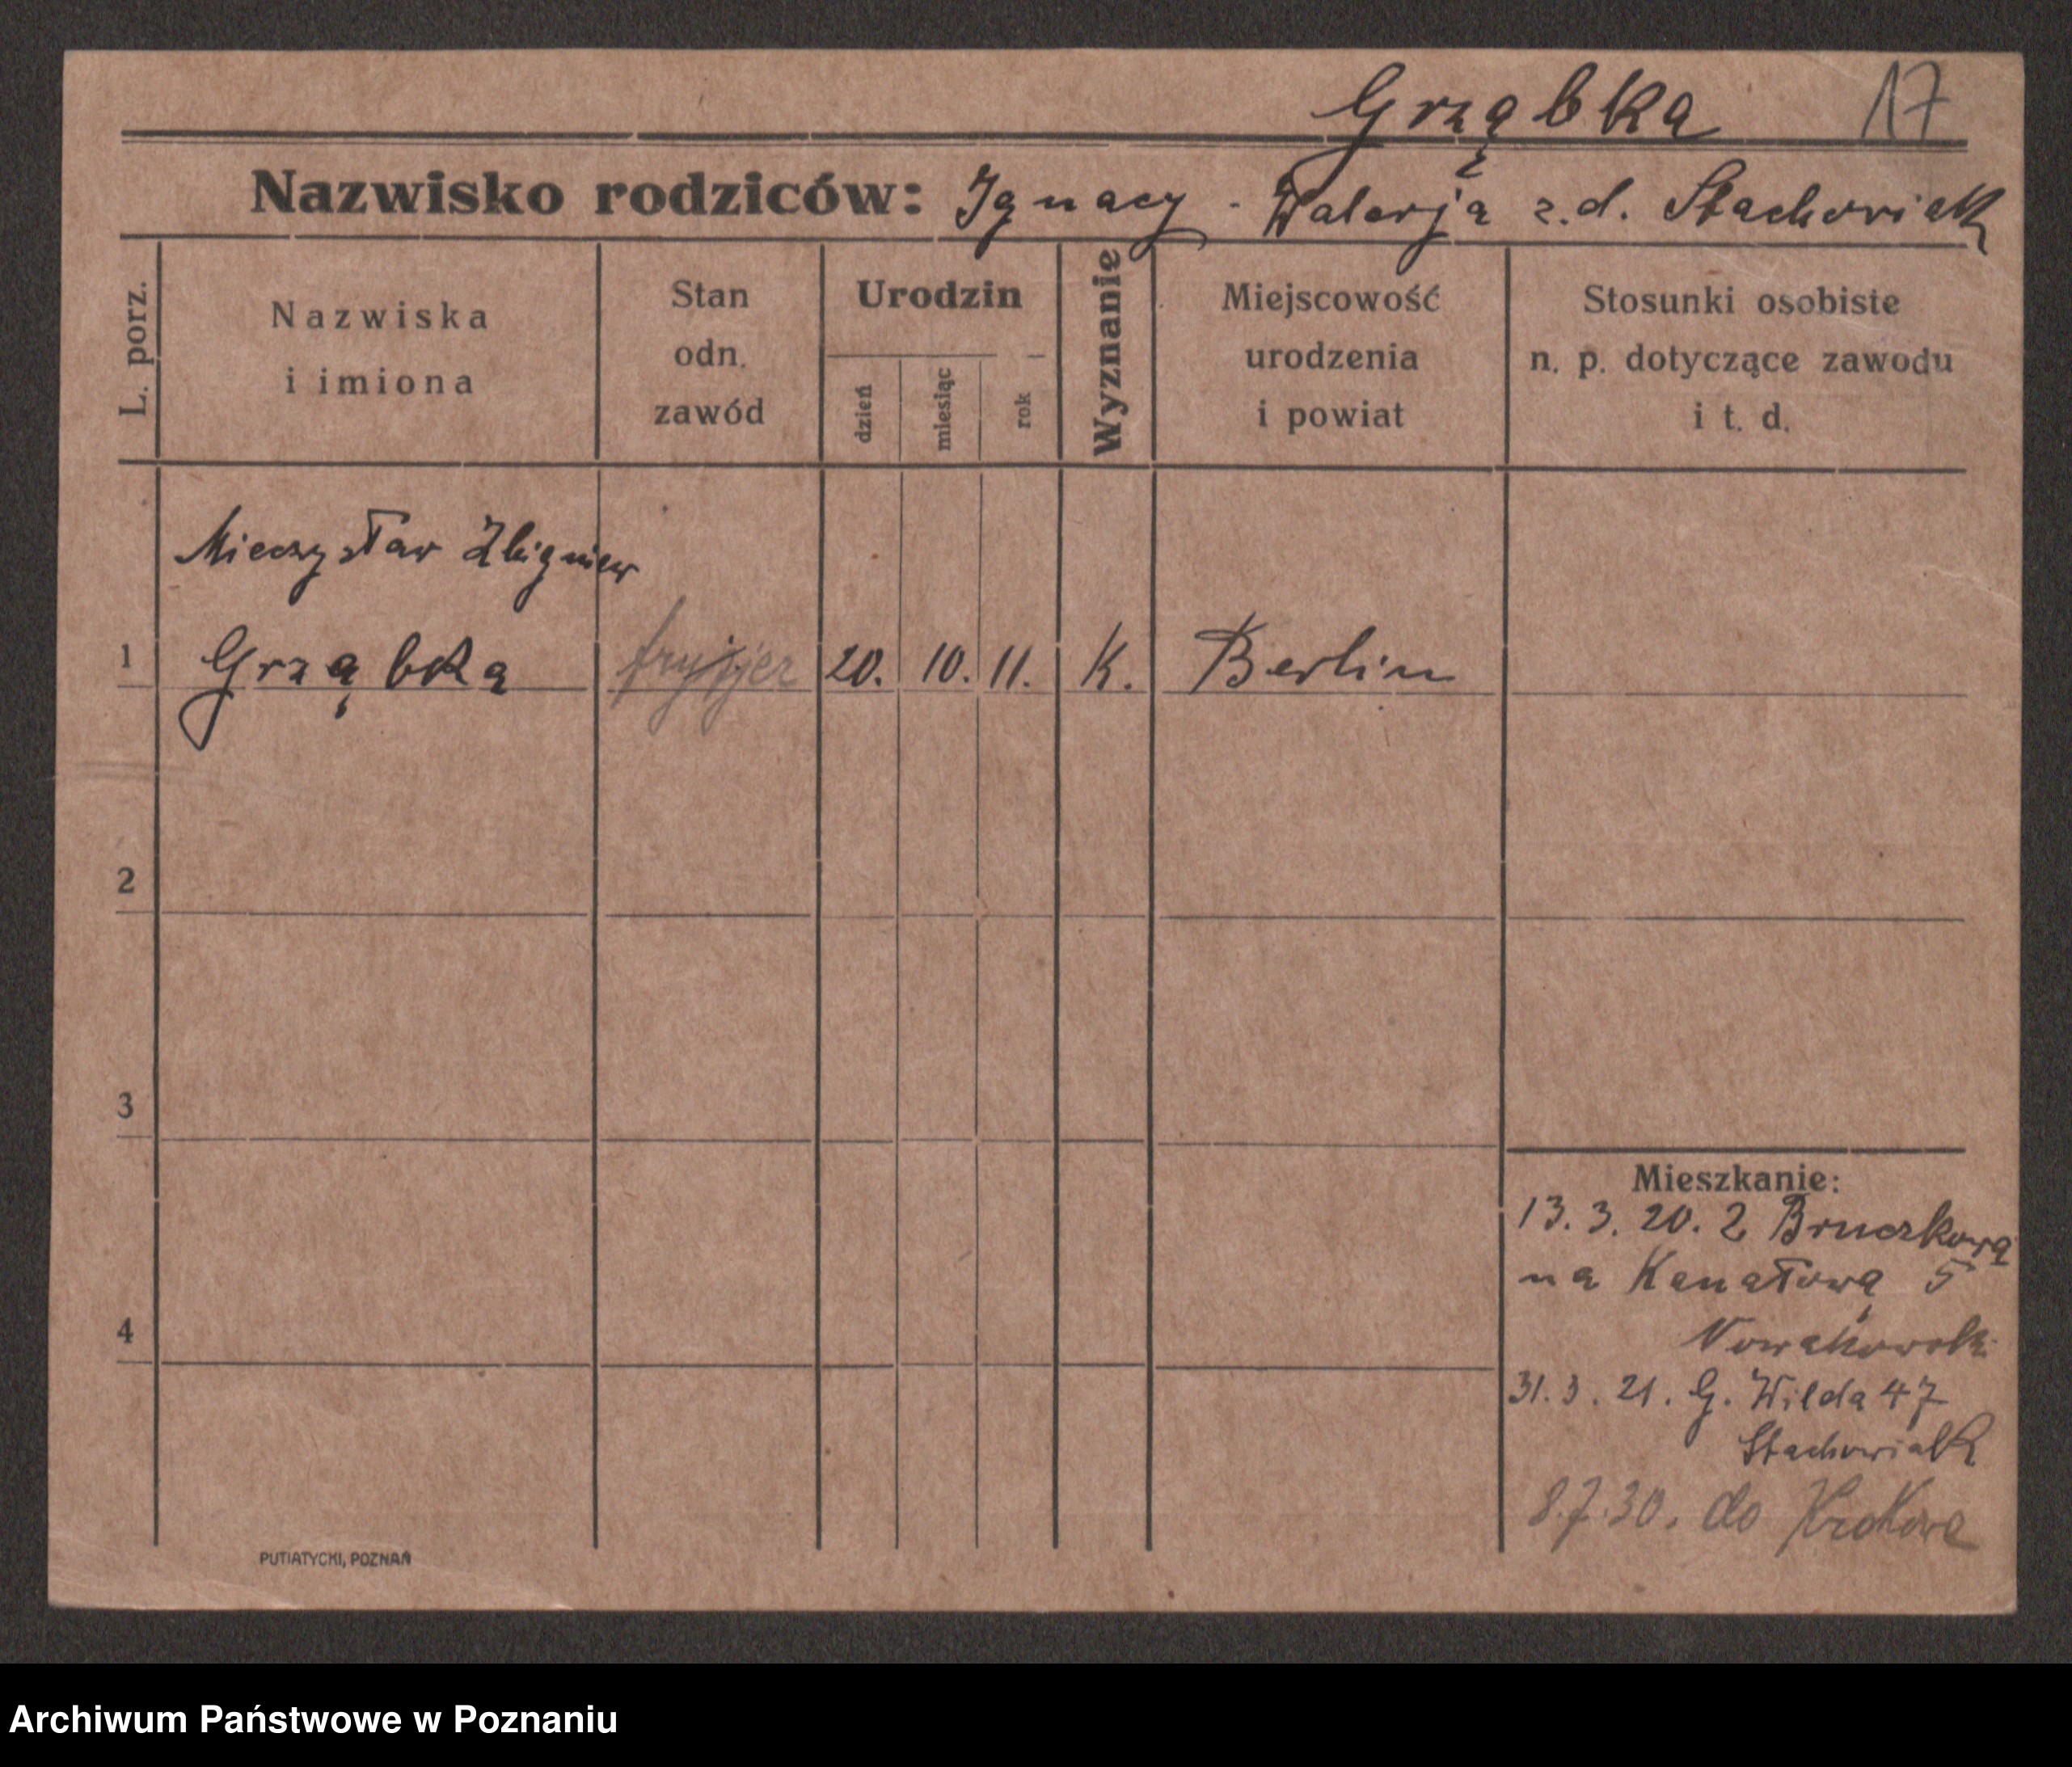 Grząbka 17
Nazwisko rodziców: Ignacy - Walerja z.d. Stachowiak
L. porz.
Nazwiska
i imiona
Stan
odn.
zawód
Urodzin
dzień
miesiąc
rok
Wyznanie
Miejscowość
urodzenia
i powiat
Stosunki osobiste
n. p. dotyczące zawodu
i t. d.
Mieczysław Zbigniew
1 Grząbka fryzjer 20. 10. 11. K. Berlin
2
3
Mieszkanie:
13. 3. 20. z Bruczkowa
na Kanałową 5
4
Nowakowski
31. 3. 21. G. Wilda 47
Stachowiak
8.7.30. do Krakowa
PUTIATYCKI, POZNAŃ
Archiwum Państwowe w Poznaniu